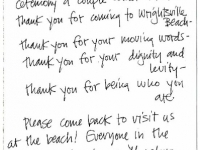 ceremony a couple
thank you for coming to Wrightsville
Beach-
thank you for your moving words-
thank you for your dignity and
levity-
thank you for being who you
are.
Please come back to visit us
at the beach! Everyone in the